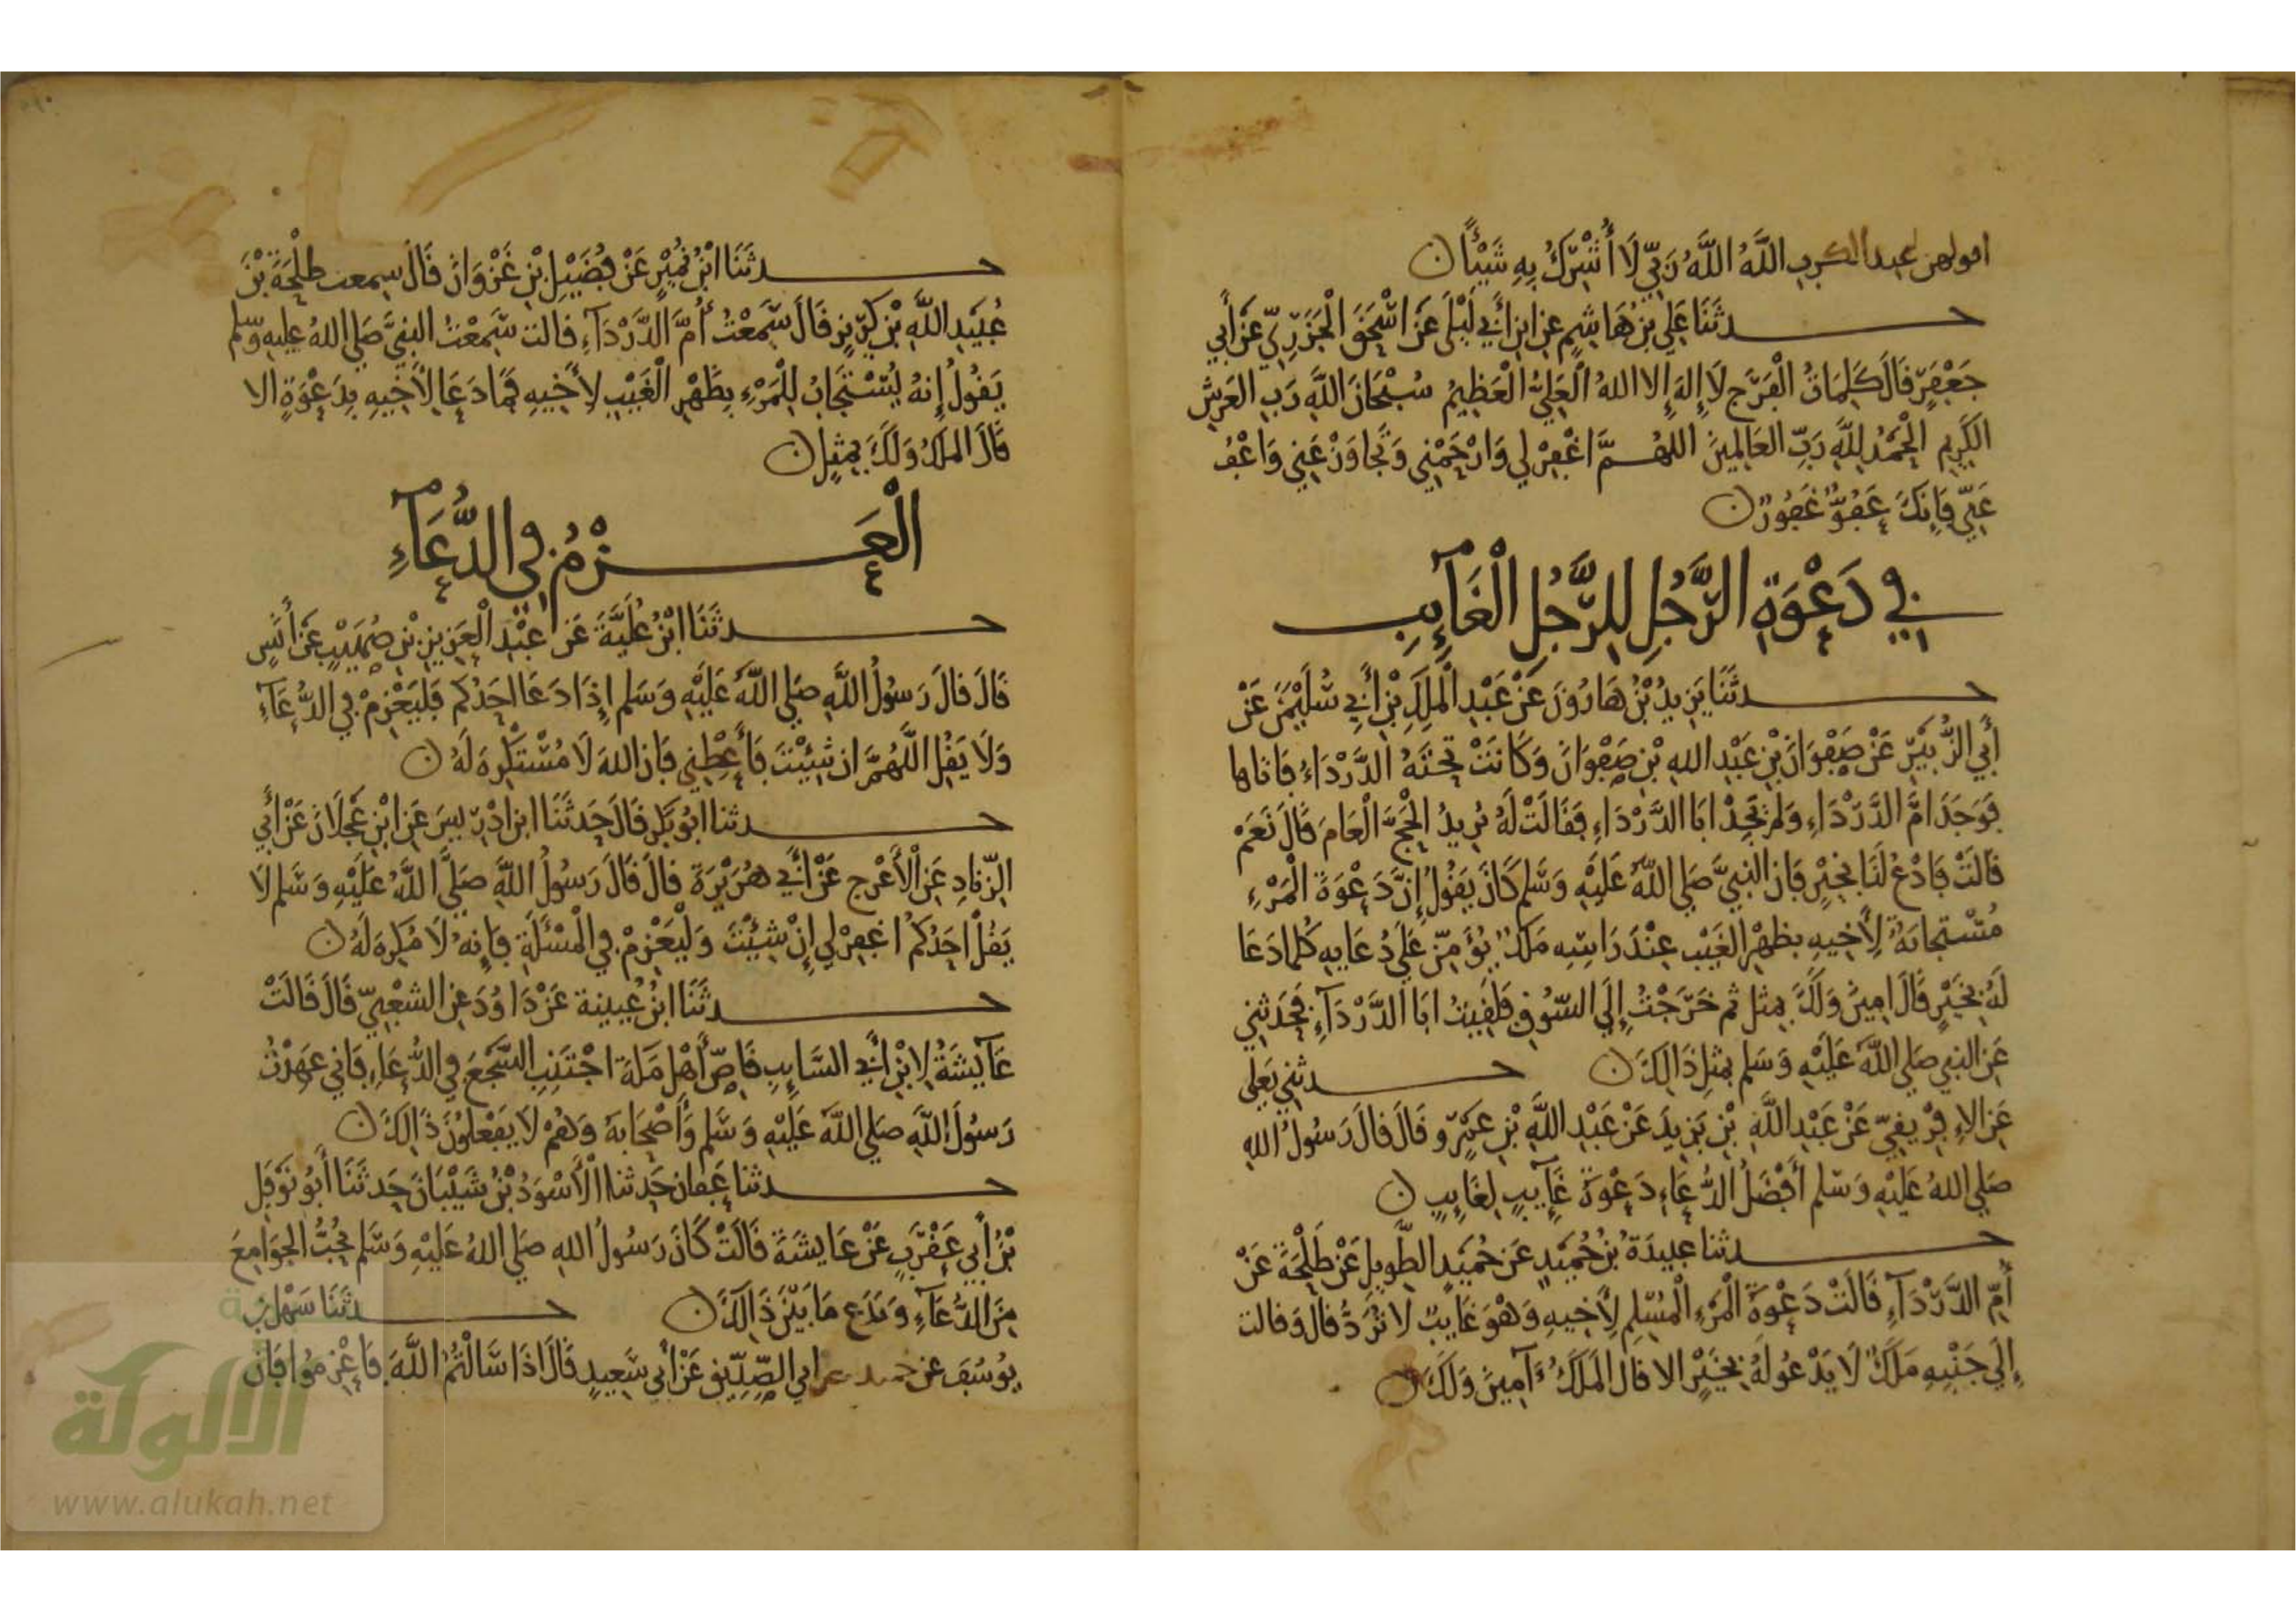 اقولهن عند الكرب اللَّهُ اللَّهُ رَبِّي لَا أُشْرِكُ بِهِ شَيْئًا
حدثَنَا عَلِي بْنُ هَاشِمٍ عن ابن أَبِي لَيْلَى عَنْ اسْحَقَ الْجَزَرِيِّ عَنْ أَبِي
جَعْفَرٍ قَالَ كَلِمَاتُ الْفَرَجِ لَا إِلهَ إِلا اللهُ الْعَلِيُّ الْعَظِيمُ سُبْحَانَ اللَّهِ رَبِ العَرشِ
الكَرِيمِ الْحَمْدُ لِلَّهِ رَبِّ العَالمِينَ اللهُمَّ اغْفِرْ لي وَارْحَمْنِي وَتَجَاوَزْ عَنِي وَاعْفُ
عَنِّي فَإِنَكَ عَفُوٌّ غَفُورٌ
فِي دَعْوَةِ الرَّجُلِ لِلرَّجُلِ الْغَآيِبِ
حدثَنَا يَزِيدُ بْنُ هَارُونَ عَنْ عَبْدِ الْمَلِكِ بْنِ أَبِي سُلَيْمَنَ عَنْ
أَبِي الزُّبَيْرِ عَنْ صَفْوَانَ بْنِ عَبْدِ اللهِ بْنِ صَفْوَانَ وَكَانَتْ تَحْتَهُ الدَّرْدَاءُ فَاتاها
فَوَجَدَ امَّ الدَّرْدَاءِ وَلَمْ يَجِدْ ابَا الدَّرْدَاءِ فَقَالَتْ لَهُ تُرِيدُ الْحَجَّ الْعَامَ قَالَ نَعَمْ
قَالَتْ فَادْعُ لَنَا بِخَيْرٍ فَان النبِيَّ صَلى اللهُ عَلَيْهِ وَسَلم كَانَ يَقُولُ إِنَّ دَعْوَةَ الْمَرْءِ
مُسْتجابَةٌ لِأَخِيهِ بظهْرِ الغَيْبِ عِنْدَ رَاسِهِ مَلَكٌ يُؤَمِّنُ عَلَى دُعَايِهِ كُلما دَعَا
لَهُ بِخَيْرٍ قَالَ امِينَ وَلَكَ بِمِثل ثم خَرَجْتُ إِلَى السّوُقِ فَلَقِيتُ ابَا الدَّرْدَآءِ فَحَدثني
عَنِ النبي صَلى اللَّهُ عَلَيْهِ وَسَلم بمثلِ ذَالِكَ حدثني يَعلى
عَنِ الافْرِيقِيِّ عَنْ عَبْدِ اللَّهِ بْنِ يَزِيدَ عَنْ عَبْدِ اللَّهِ بْنِ عَمْرٍو قَالَ قالَ رَسُولُ الله
صَلى اللهُ عَلَيْهِ وَسَلم أَفْضَلُ الدُّعَاءِ دَعْوَةُ غَآيِبٍ لِغَايِبٍ
حدثنا عبيدَةُ بْنُ حُمَيْدٍ عَن حُمَيْدٍ الطَّوِيلِ عَنْ طَلْحَةَ عَنْ
أُمِّ الدَّرْدَآءِ قَالَتْ دَعْوَةُ الْمَرْءِ الْمُسْلِمِ لِأَخِيهِ وَهْوَ غَايبٌ لا تُرَدُّ قالَ وَقالت
إِلَى جَنْبِهِ مَلَكٌ لَا يَدْعُو لَهُ بِخَيْرٍ الا قالَ الْمَلَكُ آمِينَ وَلَكَ
حدثَنَا ابْنُ نُمَيْرٍ عَنْ فُضَيْلِ بْنِ غَزْوَانَ قَالَ سمعت طلْحَةَ بْنَ
عُبَيْدِ اللَّهِ بْنِ كَرِيزٍ قَالَ سَمِعْتُ أُمَّ الدَّرْدَآءِ قالت سَمِعْتُ النبِيَّ صَلى اللهُ عليه وسلم
يَقُولُ إِنهُ يُسْتَجَابُ لِلْمَرْءِ بِظَهْرِ الْغَيْبِ لِأَخِيهِ فَمَا دَعَا لِأَخِيهِ بِدَعْوَةٍ الا
قَالَ المَلَكُ وَلَكَ بِمِثلٍ
الْعَزْمُ فِي الدُّعَآءِ
حدثَنَا ابْنُ عُلَيَّةَ عَنْ عَبْدِ الْعَزِيزِ بْنِ صُهَيْبٍ عَنْ أَنَسٍ
قَالَ قالَ رَسولُ اللَّهِ صَلى اللَّهُ عَلَيْهِ وَسَلم إِذَا دَعَا احَدُكم فَليَعْزِمْ فِي الدُّعَآءِ
وَلَا يَقُلِ اللَّهُمَّ ان شِيْتَ فَأَعْطِنِي فَان اللهَ لَا مُسْتَكْرِهَ لَهُ
حدثنا ابُو بَكْرٍ قَالَ حَدثَنَا ابن ادْرِيسَ عَنِ ابْنِ عَجْلَانَ عَنْ أَبِي
الزِّنَادِ عَنِ الْأَعْرَجِ عَنْ أَبِي هُرَيْرَةَ قالَ قَالَ رَسُولُ اللَّهِ صَلَّى اللَّهُ عَلَيْهِ وَسَلم لَا
يَقُلْ احَدُكُمْ اغفِرْ لي إِنْ شِيْتَ وَلْيَعْزِمْ فِي الْمَسْئَلَةِ فَإِنهُ لَا مُكرِهَ لَهُ
حدثَنَا ابْنُ عُيينة عَنْ دَاوُدَ عن الشعْبِيِّ قَالَ قَالَتْ
عَآيِشَةُ لِابْنِ أَبِي السَّايبِ قَاصِّ أَهْلِ مَكة اجْتَنِبِ السَّجَعَ فِي الدُّعَاءِ فَاني عَهِدْتُ
رَسُولَ اللَّهِ صَلى اللَّهُ عَلَيْهِ وَسَلم وَأَصْحَابَهُ وَهُمْ لَا يَفْعَلُونَ ذَالِكَ
حدثنا عَفان حَدثنا الْأَسْوَدُ بْنُ شَيْبَانَ حَدثَنَا أَبُو نَوْفَلِ
بْنُ أَبِي عَقْرَبٍ عَنْ عَايشَةَ قَالَتْ كَانَ رَسُولُ اللهِ صَلى اللهُ عَلَيْهِ وَسَلم يُحِبُّ الجَوَامِعَ
مِنَ الدُّعَآءِ وَيَدَع مَا بَيْنَ ذَالِكَ حدثَنَا سَهْلُ بن
يُوسُفَ عن حميد عن ابي الصِّدِّيقِ عَنْ أَبِي سَعِيدٍ قَالَ اذَا سَالْتُمُ اللَّهَ فَاعْزِمُوا فَانَّ
الألوكة
www.alukah.net